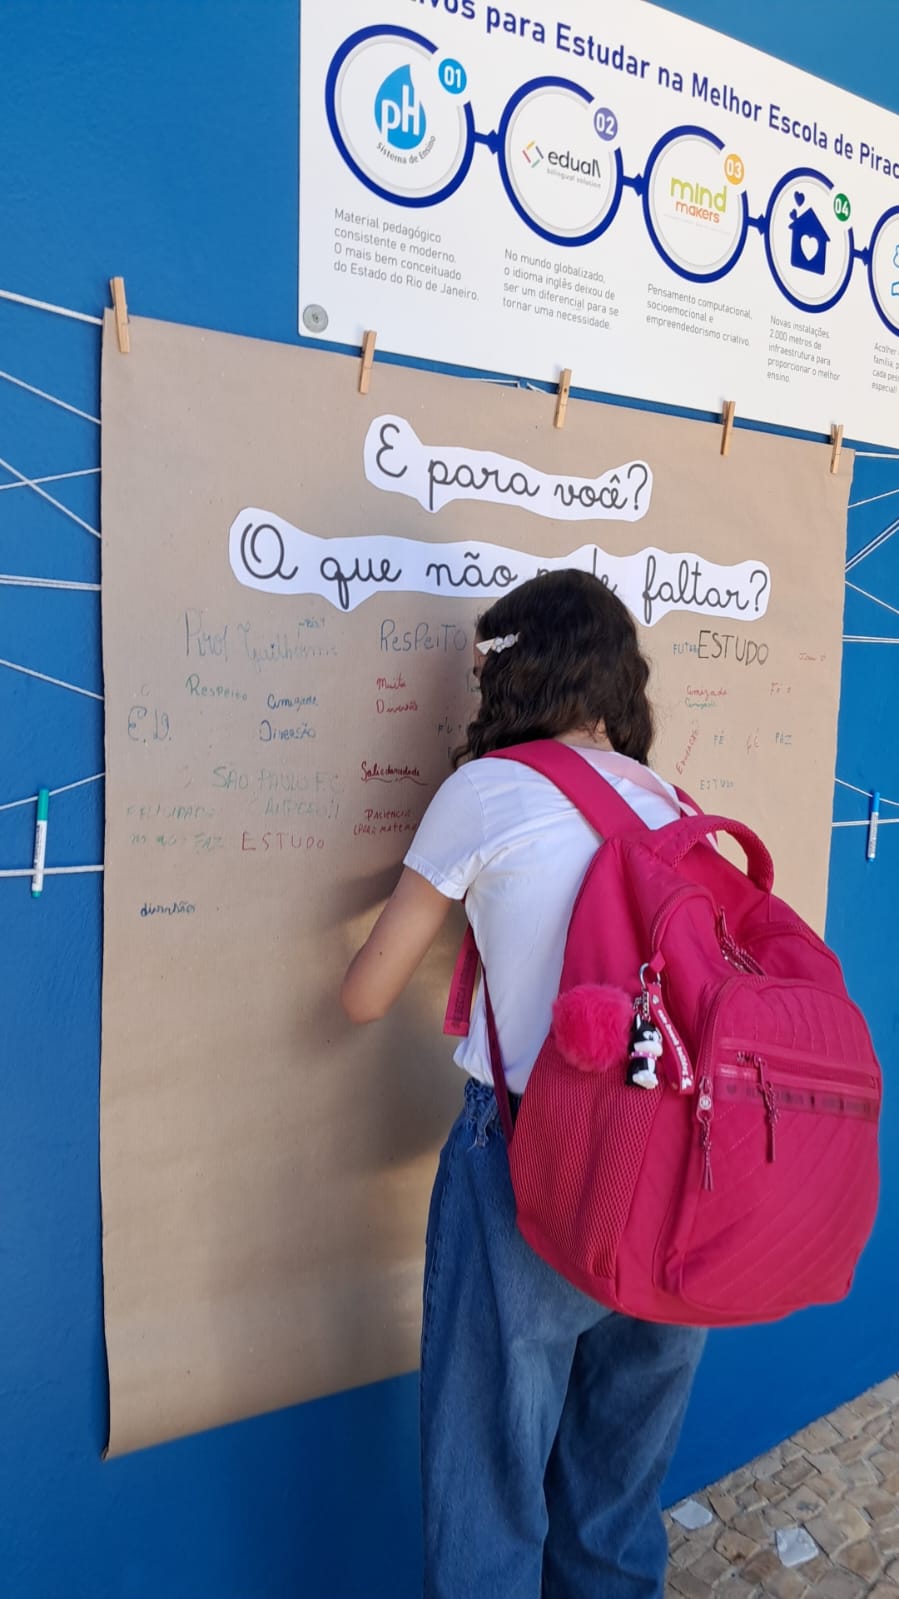 para Estudar na Melhor Escola de
01
pH
Sistema de Ensino
Material pedagógico
consistente e moderno.
O mais bem conceituado
do Estado do Rio de Janeiro.
02
edual
bilingual solution
No mundo globalizado,
o idioma inglês deixou de
ser um diferencial para se
tornar uma necessidade.
03
mind
makers
Pensamento computacional,
socioemocional e
empreendedorismo criativo.
04
Novas instalações.
2.000 metros de
infraestrutura para
proporcionar o melhor
ensino.
Acolher
família,
especial!
E para você?
O que não faltar?
Prof Guilherme
RESPEITO
ESTUDO
Respeito
Amizade
Diversão
Muita
Diversão
Amizade
FÉ
PAZ
EDUCAÇÃO
SÃO PAULO F.C
Solidariedade
ESTUDO
FELICIDADE
PACIENCIA
ESTUDO
diversão